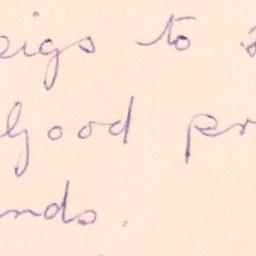 pigs to
good pr
nds.